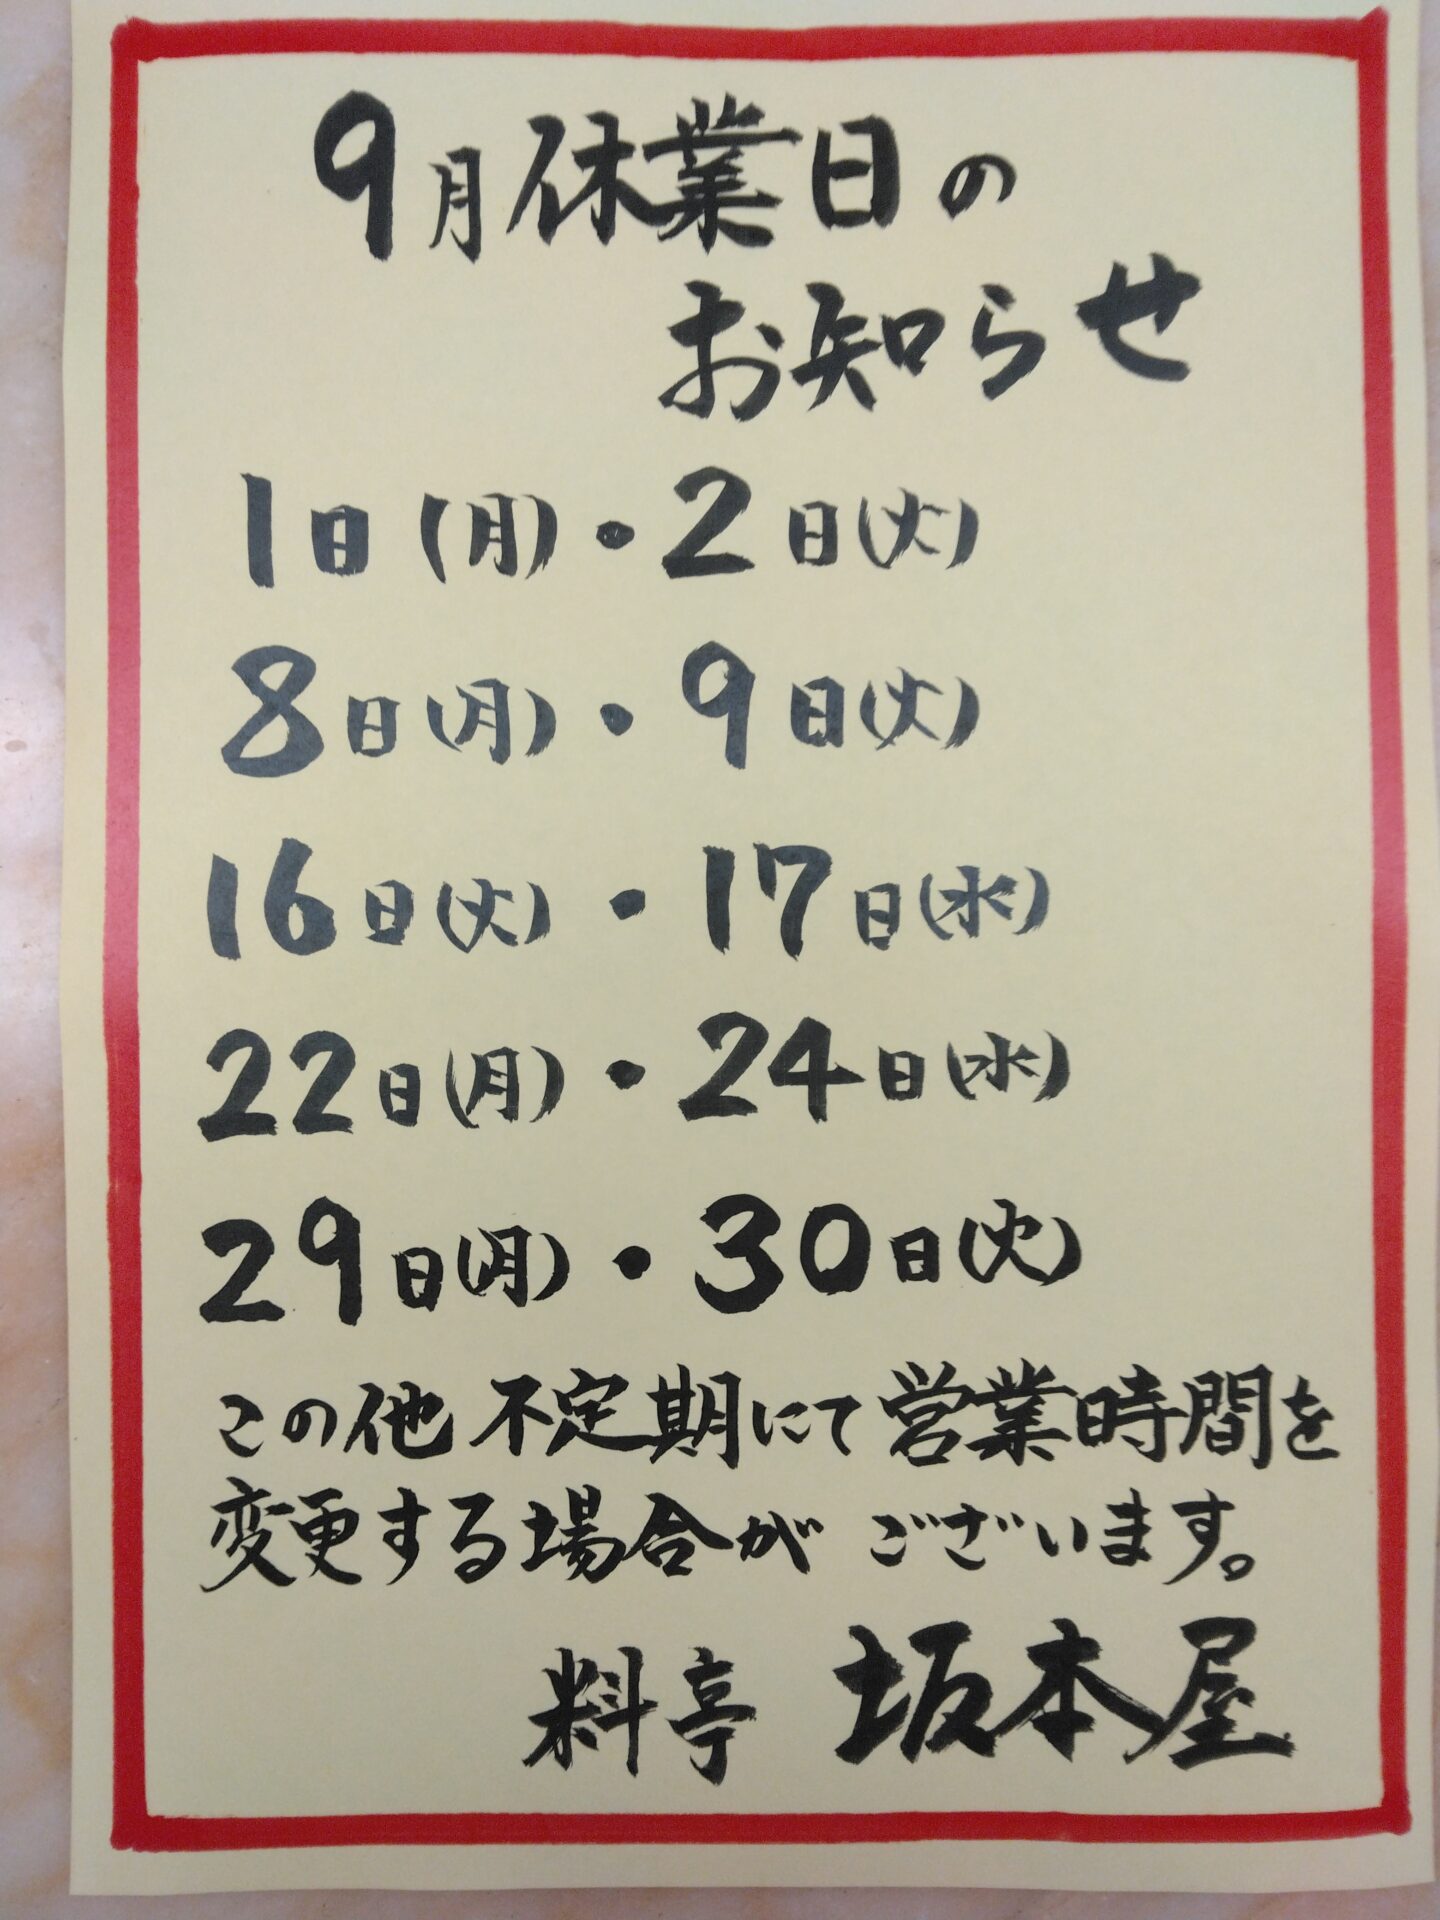 9月休業日の
お知らせ
1日(月)・2日(火)
8日(月)・9日(火)
16日(火)・17日(水)
22日(月)・24日(水)
29日(月)・30日(火)
この他不定期にて営業時間を
変更する場合がございます。
料亭 坂本屋